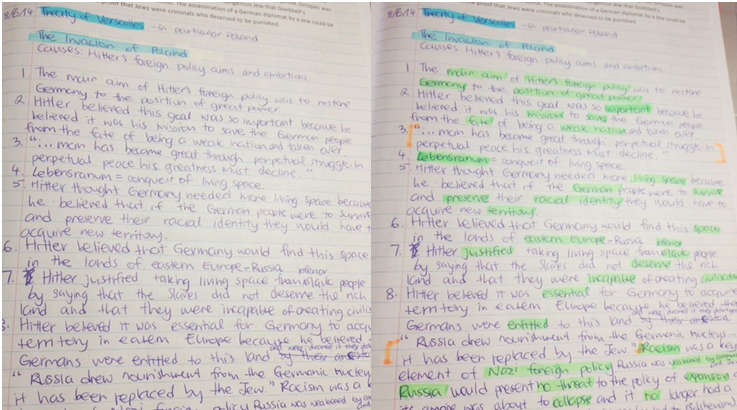 proof that Jews were criminals who deserved to be punished.
8/6/14 Treaty of Versailles - in particular Poland
The Invasion of Poland
Causes Hitler's foreign policy aims and ambitions
1 The main aim of Hitler's foreign policy was to restore
Germany to the position of great power
2 Hitler believed this goal was so important because he
believed it was his mission to save the German people
from the fate of being a weak nation and taken over
3. "... man has become great through perpetual struggle. In
perpetual peace his greatness must decline."
4. Lebensraum = conquest of living space
5. Hitler thought Germany needed more living space because
he believed that if the German people were to survive
and preserve their racial identity they would have
acquire new territory.
6. Hitler believed that Germany would find this space
in the lands of eastern Europe - Russia inferior
7. Hitler justified taking living space from Slavic people
by saying that the Slaves did not deserve the rich
land and that they were incapable of creating
8. Hitler believed it was essential for Germany to
territory in eastern Europe because he believed
Germans were entitled to this land
"Russia drew nourishment from the Germanic
it has been replaced by the Jew." Racism was a
policy Russia was weakened by
proof that Jews were criminals who deserved to be punished.
8/6/14 Treaty of Versailles - in particular Poland
The Invasion of Poland
Causes Hitler's foreign policy aims and ambitions
1 The main aim of Hitler's foreign policy was to restore
Germany to the position of great power
2 Hitler believed this goal was so important because he
believed it was his mission to save the German people
from the fate of being a weak nation and taken over
3. "... man has become great through perpetual struggle. In
perpetual peace his greatness must decline."
4. Lebensraum = conquest of living space
5. Hitler thought Germany needed more living space because
he believed that if the German people were to survive
and preserve their racial identity they would have to
acquire new territory.
6. Hitler believed that Germany would find this space
in the lands of eastern Europe - Russia inferior
7. Hitler justified taking living space from Slavic people
by saying that the Slaves did not deserve the rich
land and that they were incapable of creating
8. Hitler believed it was essential for Germany to acquire
territory in eatern Europe because he believed that
Germans were entitled to this land
"Russia drew nourishment from the Germanic nucleus
it has been replaced by the Jew." Racism was a key
element of Nazi foreign policy Russia was weakened by
Russia would present no threat to the policy of expansion
was about to collapse and it no longer had a